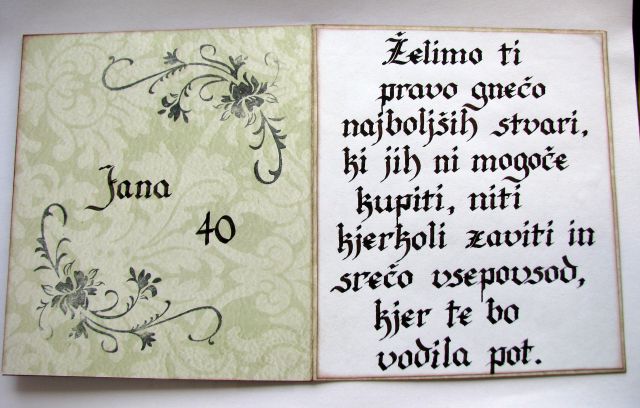 Jana
40
Želimo ti
pravo gnečo
najboljših stvari,
ki jih ni mogoče
kupiti, niti
kjerkoli zaviti in
srečo vsepovsod,
kjer te bo
vodila pot.